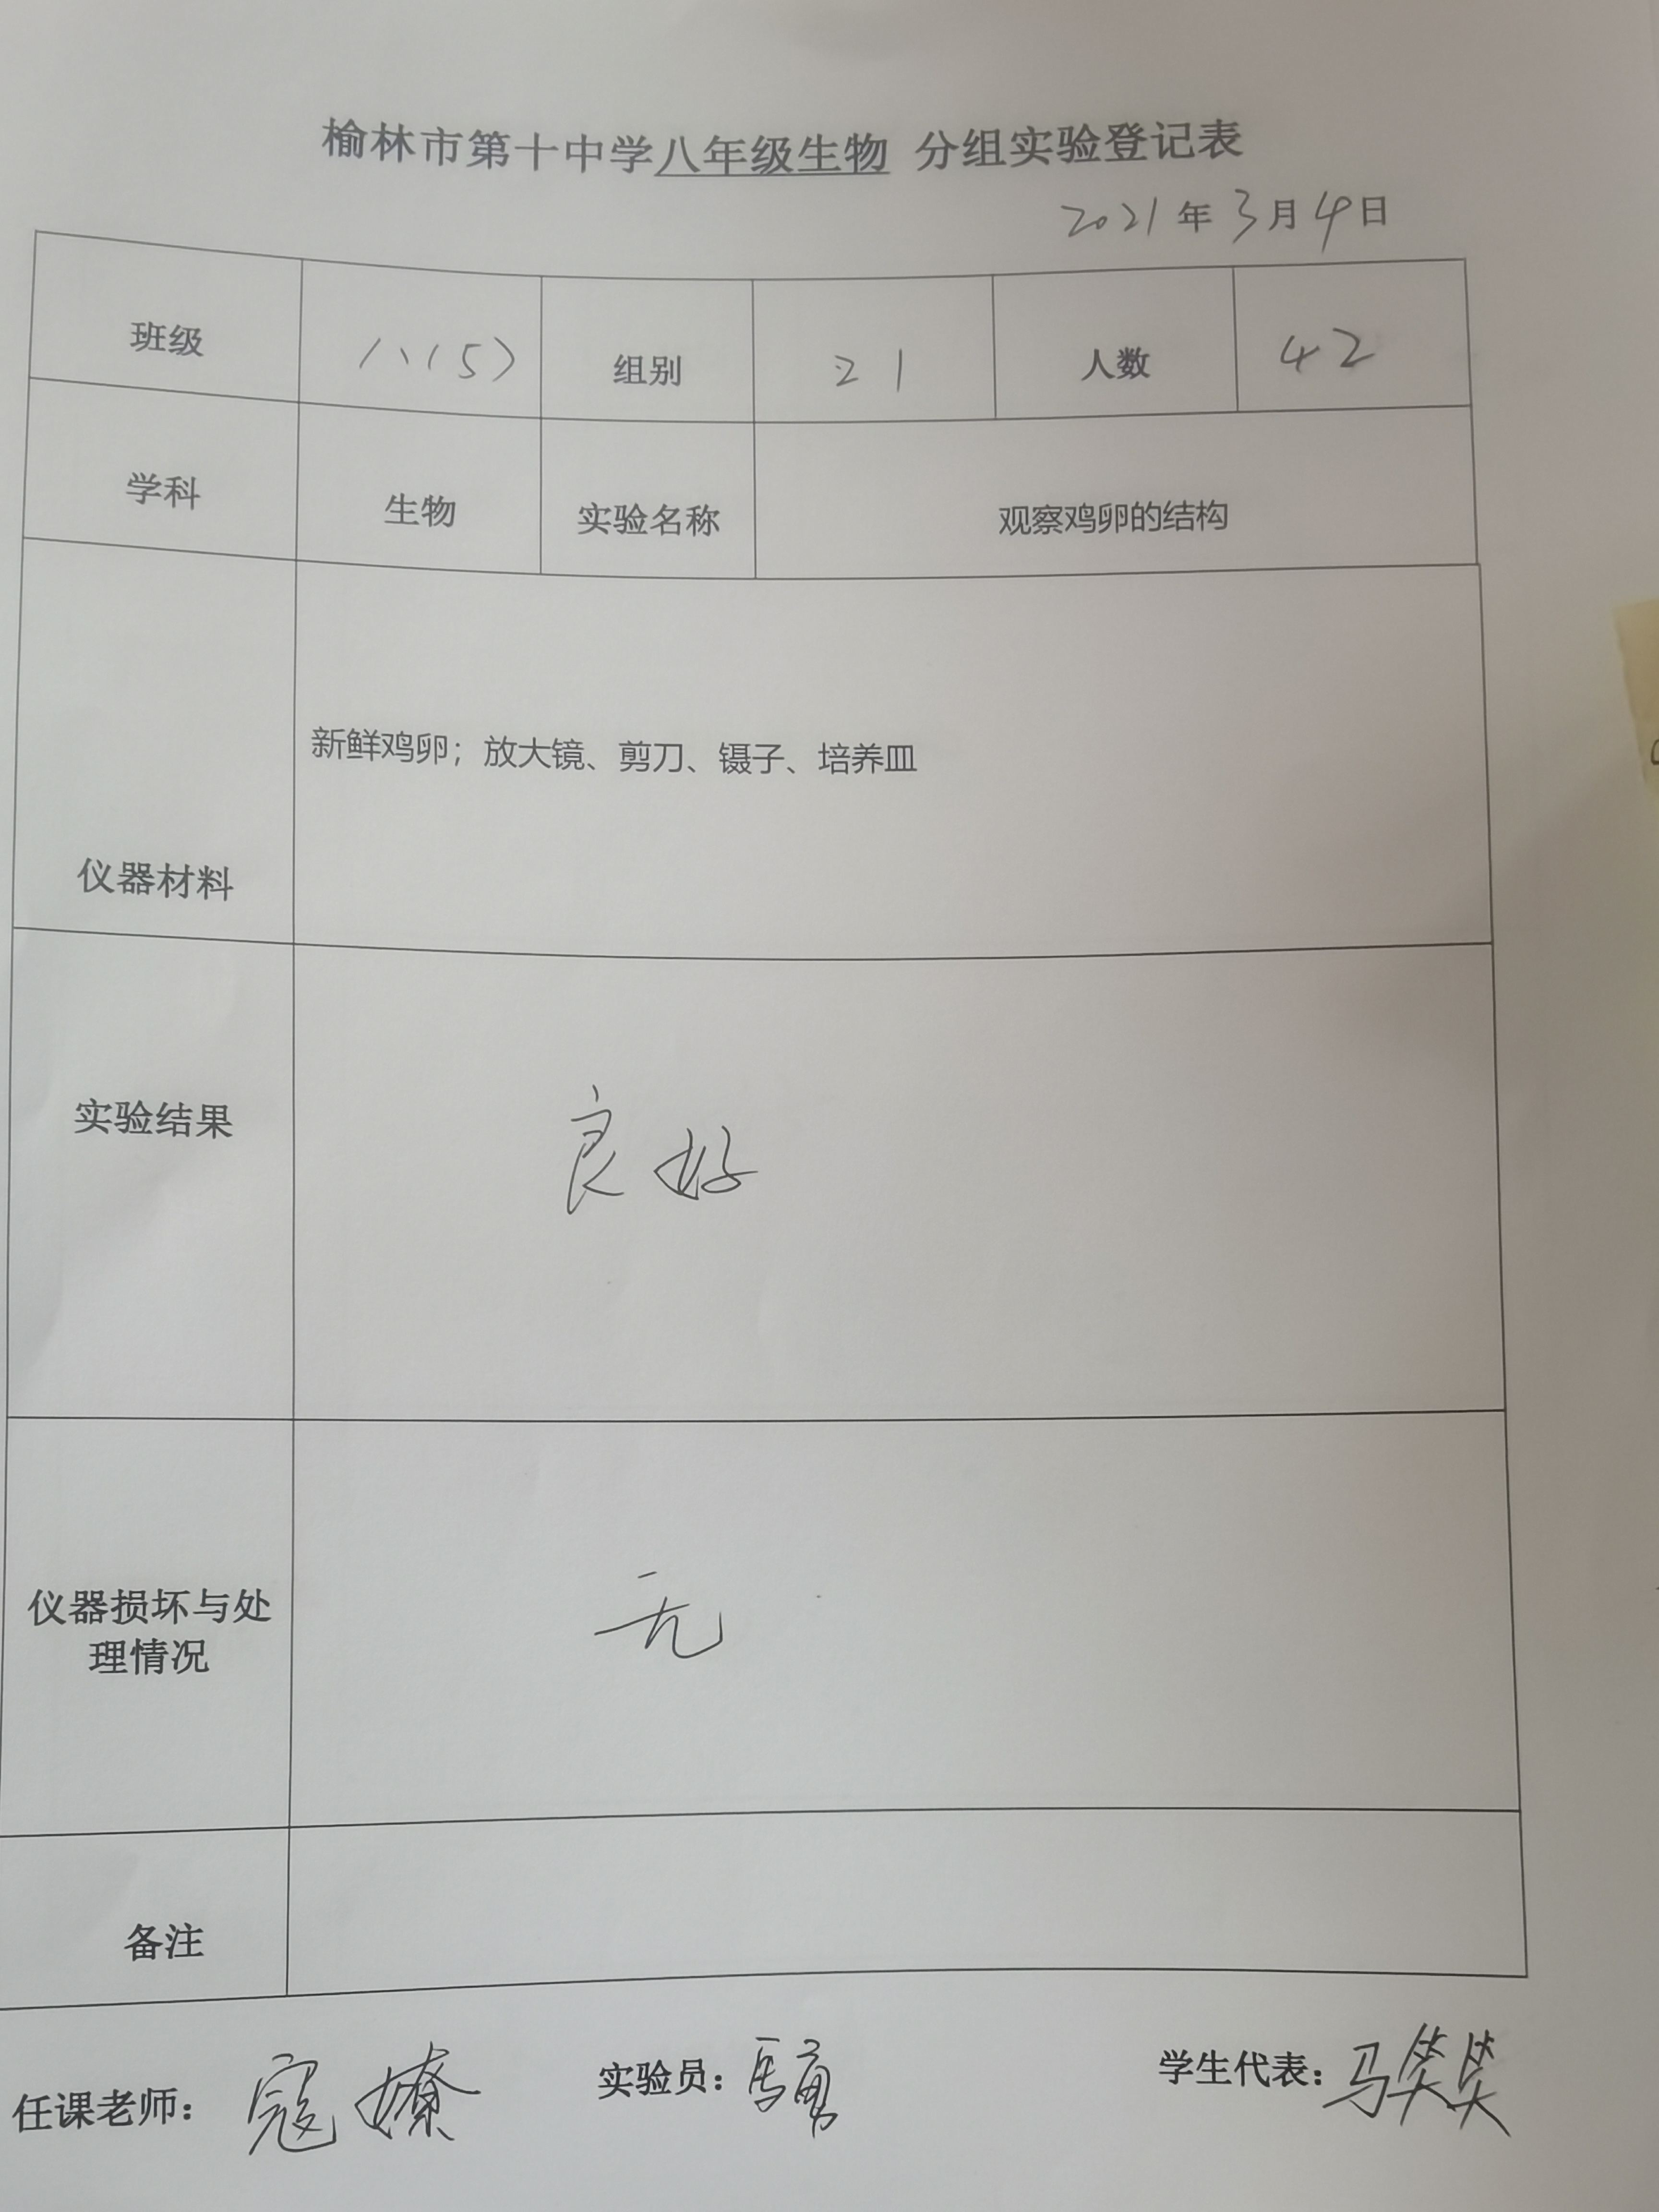 榆林市第十中学八年级生物 分组实验登记表
2021年3月4日
班级 八(5) 组别 21 人数 42
学科 生物 实验名称 观察鸡卵的结构
新鲜鸡卵；放大镜、剪刀、镊子、培养皿
仪器材料
实验结果 良好
仪器损坏与处
理情况
无
备注
任课老师： 寇嫽 实验员： 学生代表：马笑笑